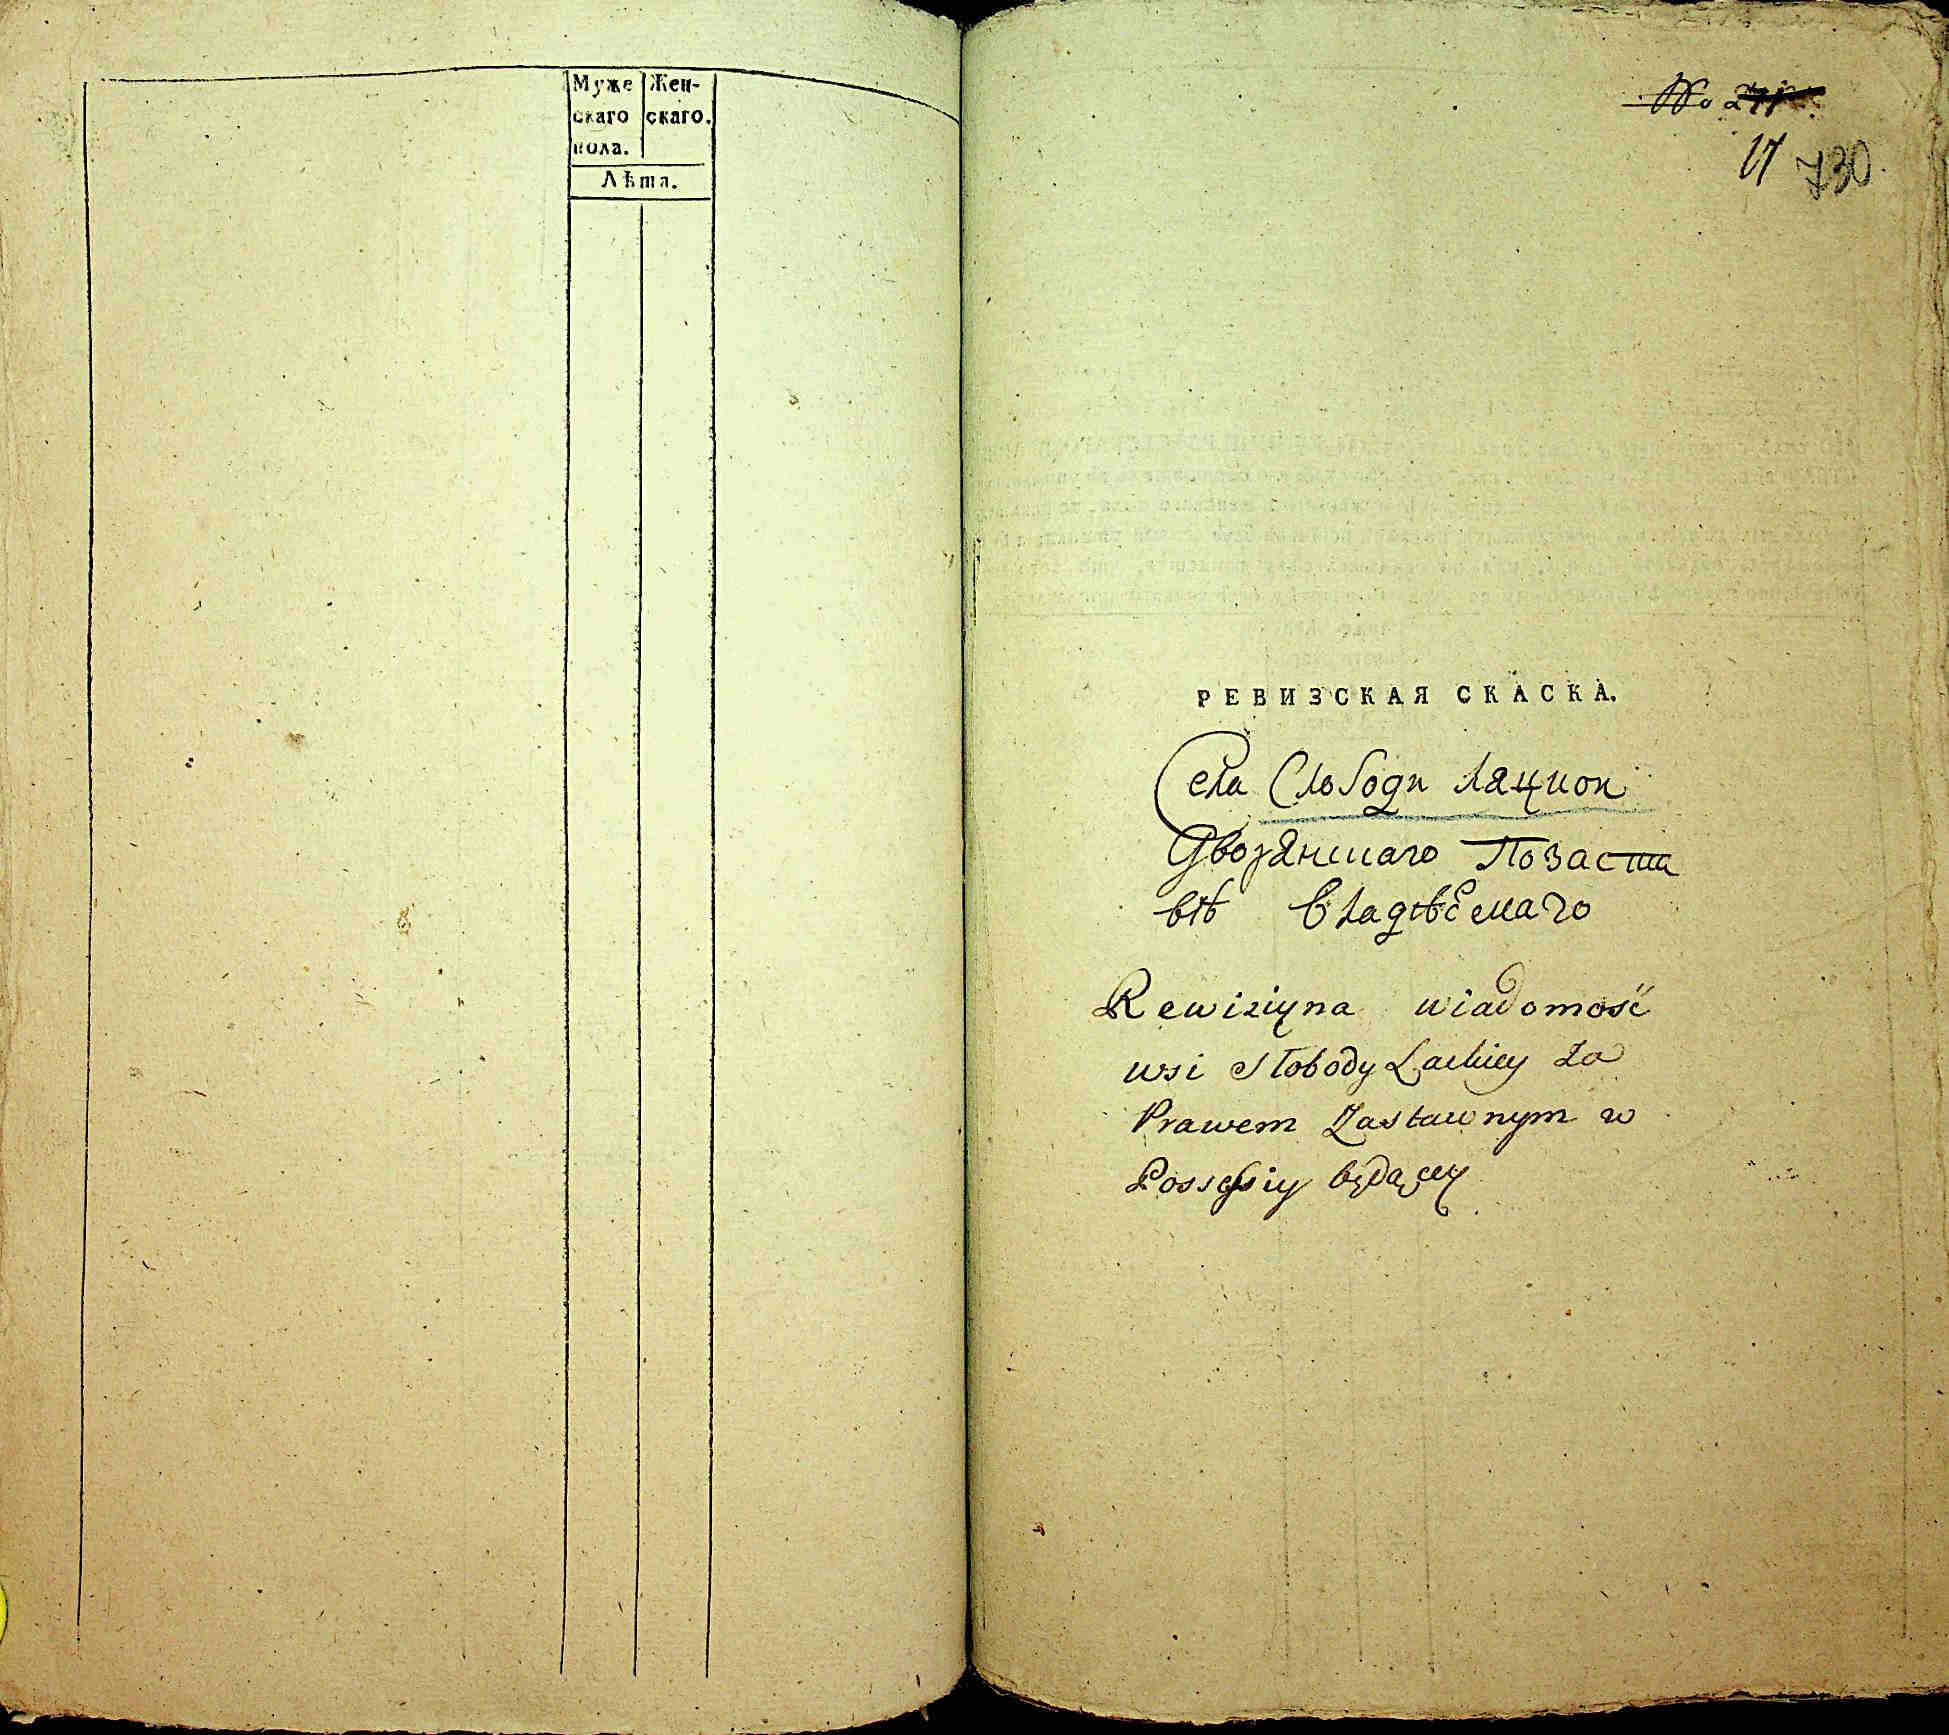 Муже Жен-
скаго скаго.
пола.
Лѣта.
№
17 730.
РЕВИЗСКАЯ СКАСКА.
Села Слободи Ляцкои
Дворянскаго Позаста
вѣ Владѣемаго
Rewiziyna wiadomość
wsi Słobody Lackiey Za
Prawem Zastawnym w
Possessiy będącey